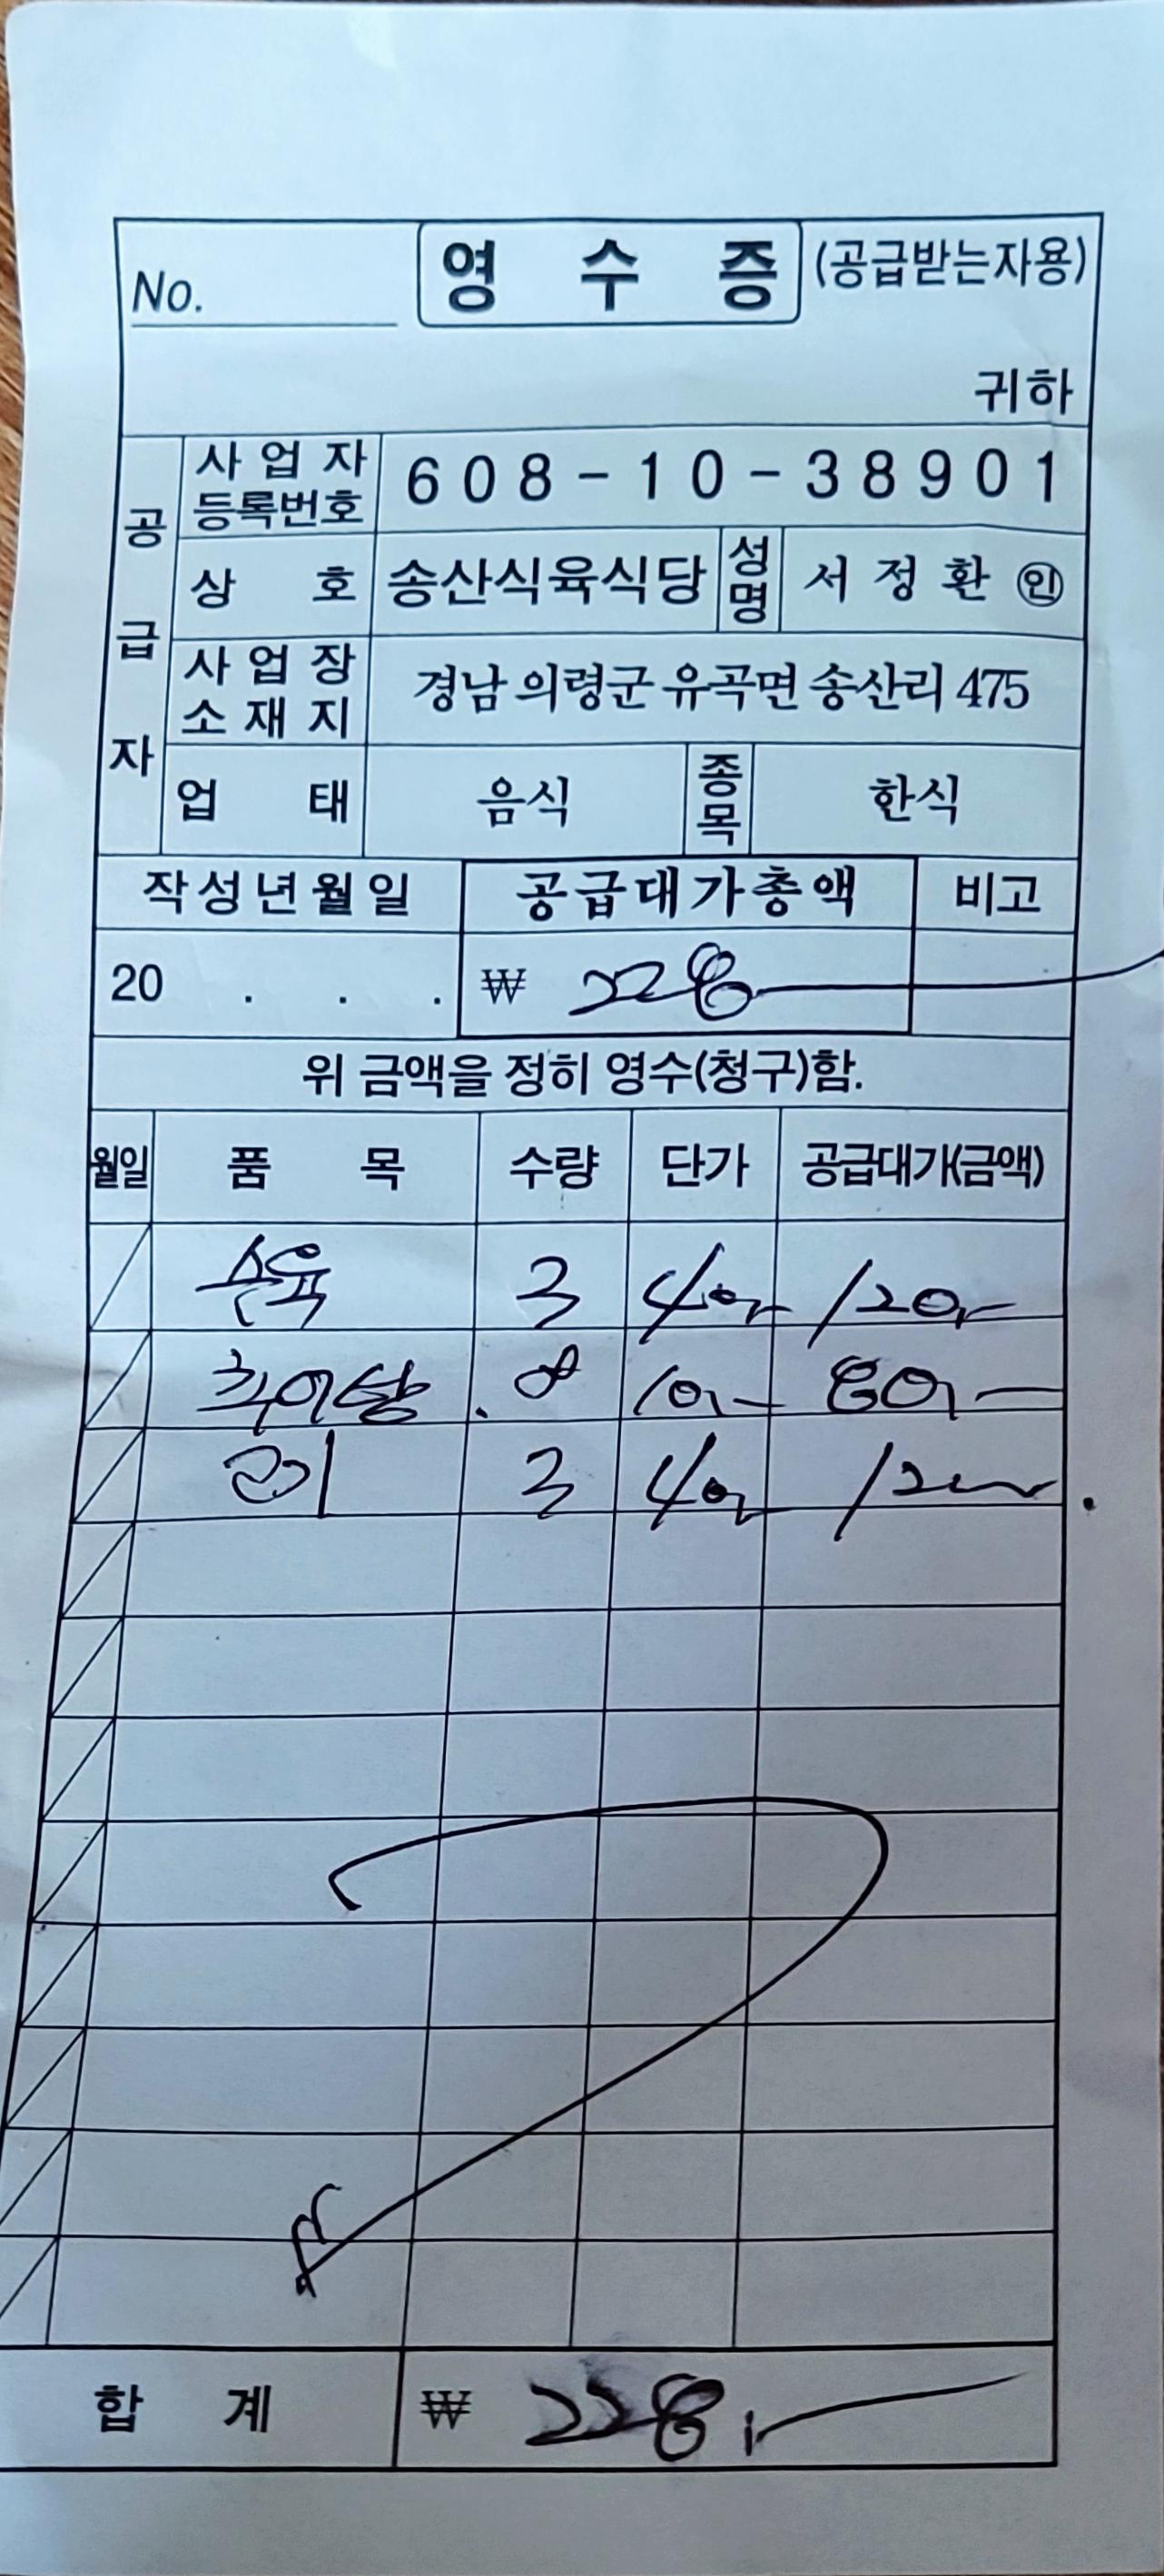 No. 영 수 증 (공급받는자용)
귀하
공급자
사업자등록번호 608-10-38901
상 호 송산식육식당 성명 서 정 환 ㊞
사업장소재지 경남 의령군 유곡면 송산리 475
업 태 음식 종목 한식
작성년월일 공급대가총액 비고
20 . . . ₩ 228
위 금액을 정히 영수(청구)함.
월일 품 목 수량 단가 공급대가(금액)
수육 3 40,- 120,-
추어탕 8 10,- 80,-
3 40,
합 계 ₩ 228,-